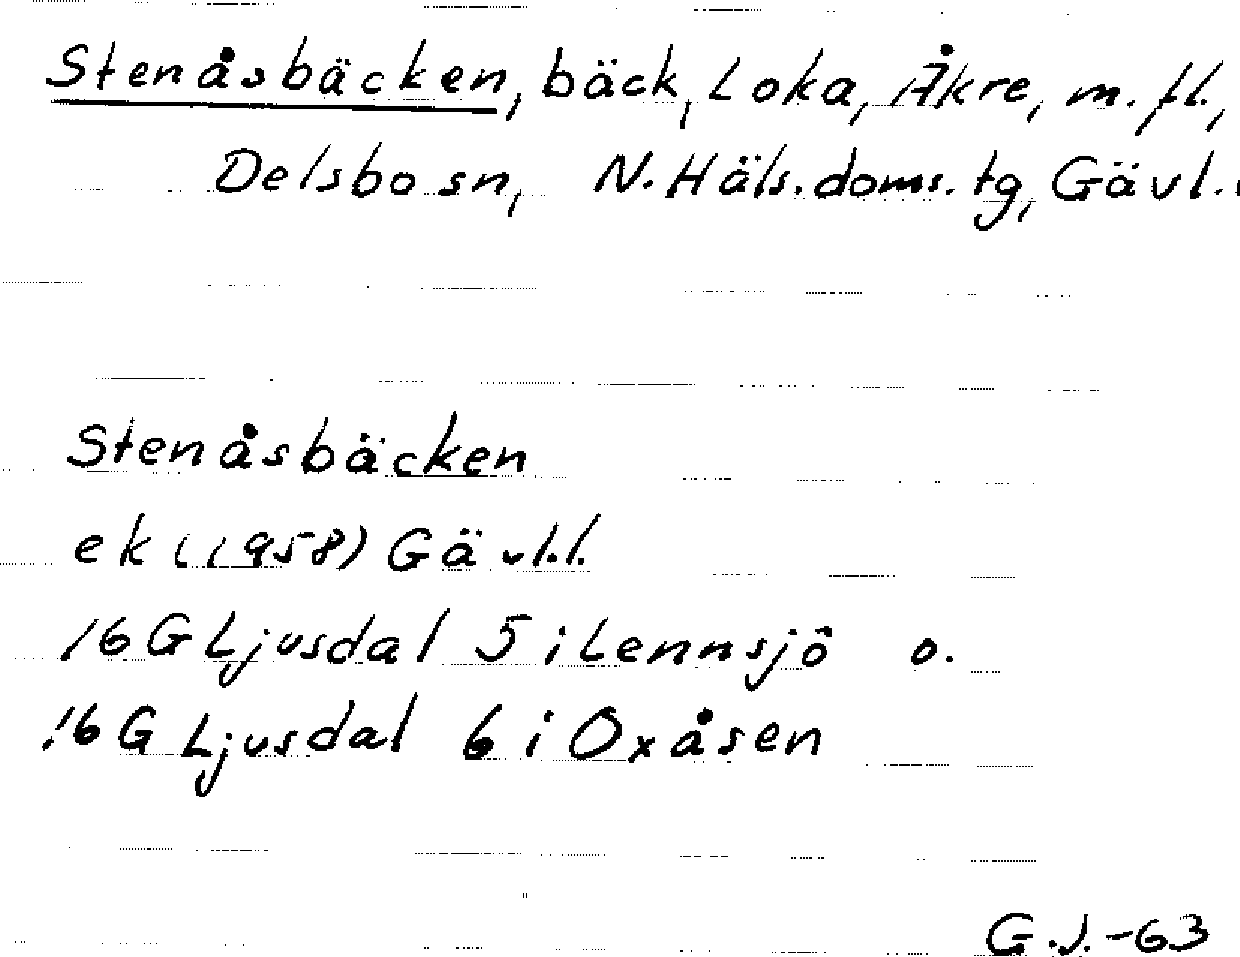 Stenåsbäcken, bäck, Loka, Åkre, m. fl.,
Delsbo sn, N. Häls. doms. tg, Gävl.
Stenåsbäcken
ek (1958) Gävl.l.
16 G Ljusdal 5 i Lennsjö o.
16 G Ljusdal 6 i Oxåsen
G.J.-63